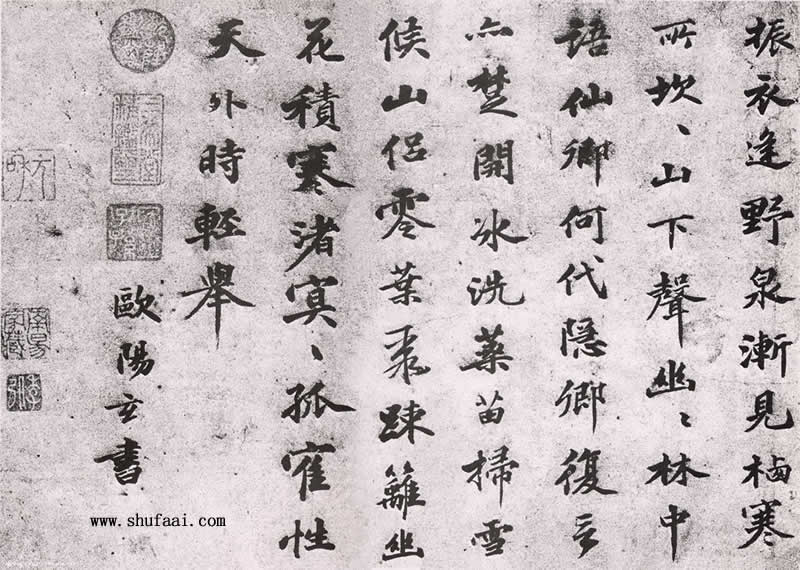 振衣逢野泉漸見栖寒
所坎、山下聲幽、林中
語仙卿何代隱卿復言
亦楚開冰洗藥苗掃雪
候山侶零葉踈籬幽
花積寒渚寞、孤寉性
天外時輕舉
歐陽玄書
www.shufaai.com